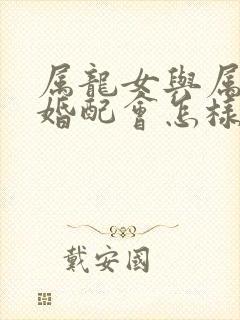 属龍女與属
婚配會怎樣
戴安國